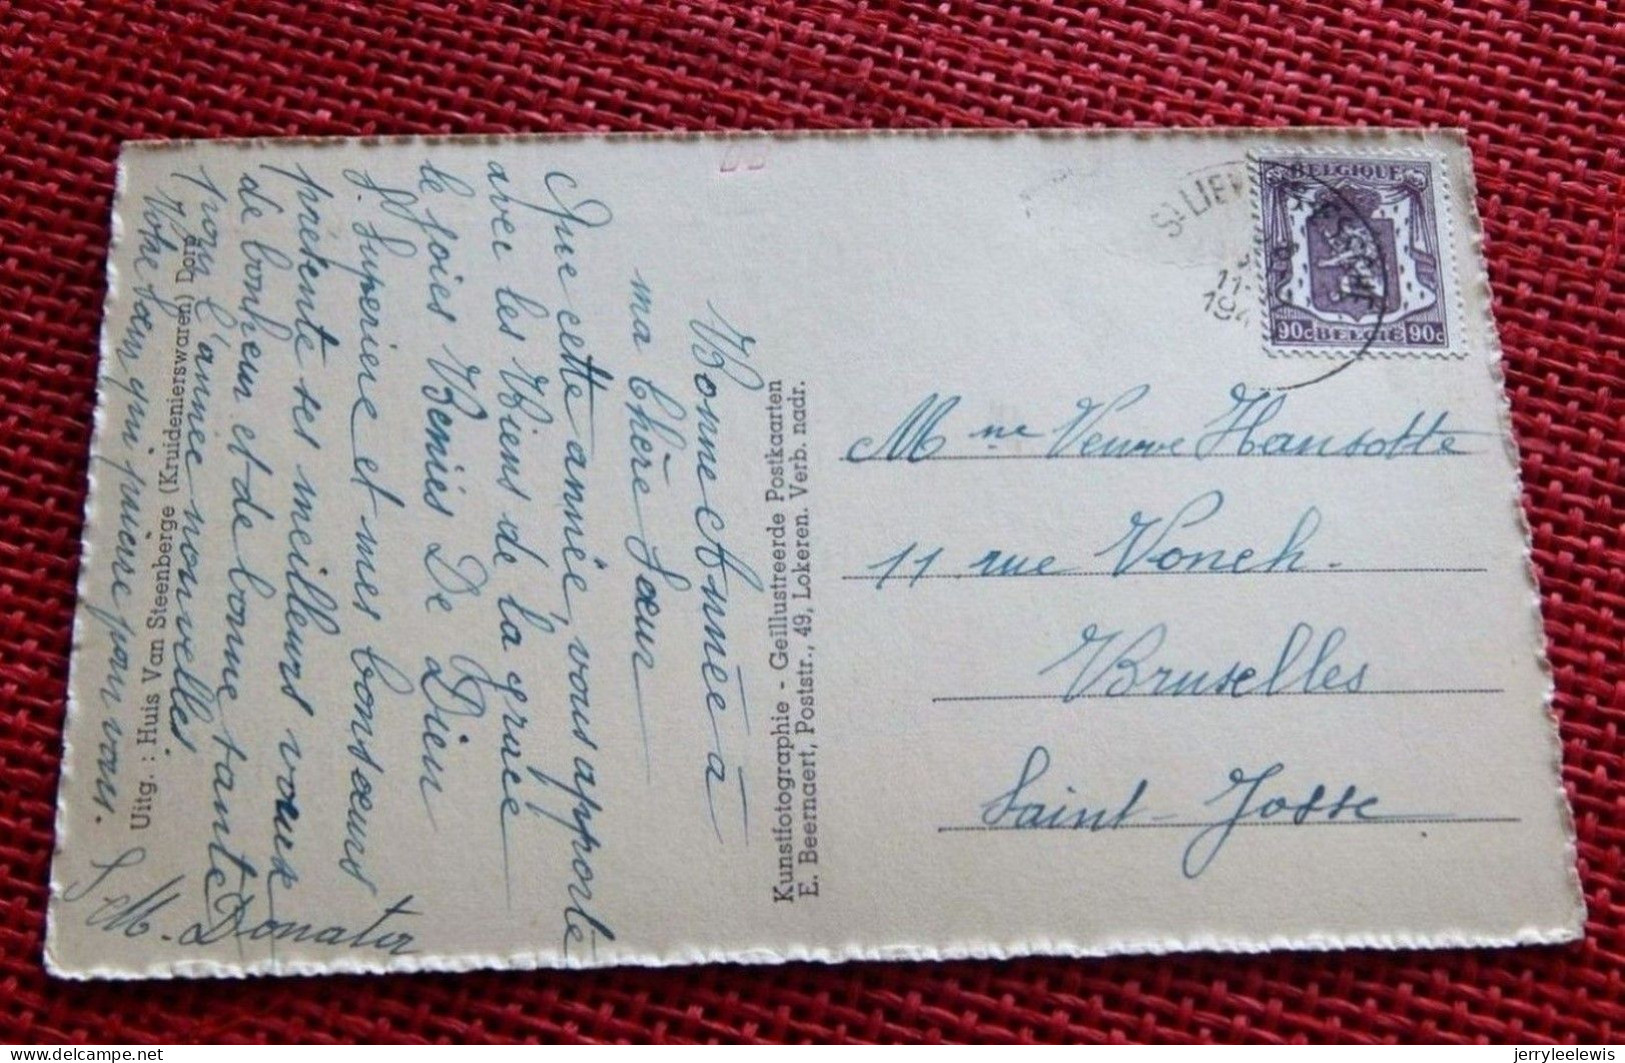 Bonne Année à
ma Chère Sœur
Que cette année, vous apporte
avec les Biens de la grâce
le joies Benies De Dieu
S. Superieure et mes consœurs
présente ses meilleurs vœux
de bonheur et de bonne tante
pour l'année nouvelles
Votre sœur qui priere pour vous.
S. M. Donatia
Uitg. : Huis Van Steenberge (Kruidenierswaren)
Kunstfotographie - Geïllustreerde Postkaarten
E. Beernaert, Poststr., 49, Lokeren. Verb. nadr.
BELGIQUE
90c BELGIË 90c
Mme Veuve Hansotte
11 rue Vonck.
Bruxelles
Saint-Josse
jerryleelewis